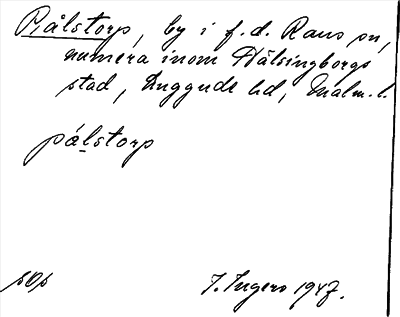 Pjålstorp, by i f.d. Raus sn,
numera inom Hälsingborgs
stad, Luggude hd, Malm. l.
pálstorp
sOs
J. Ingers 1947.